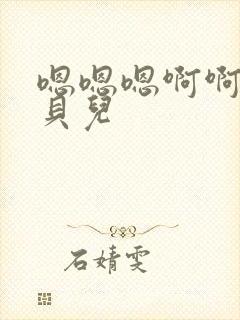 嗯嗯嗯啊啊
貝兒
石婧雯